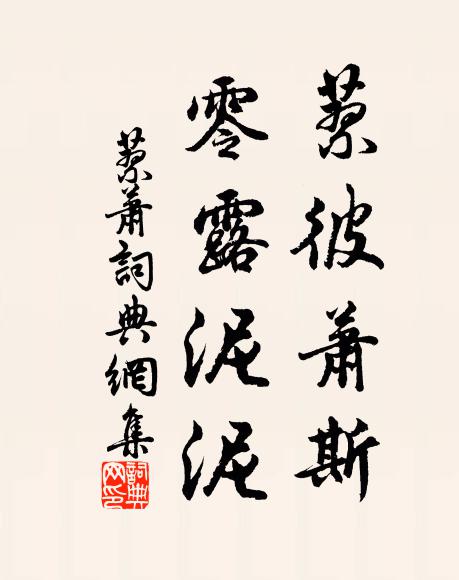 蓼彼蕭斯
零露泥泥
蓼蕭詞典網集
詞典
网印